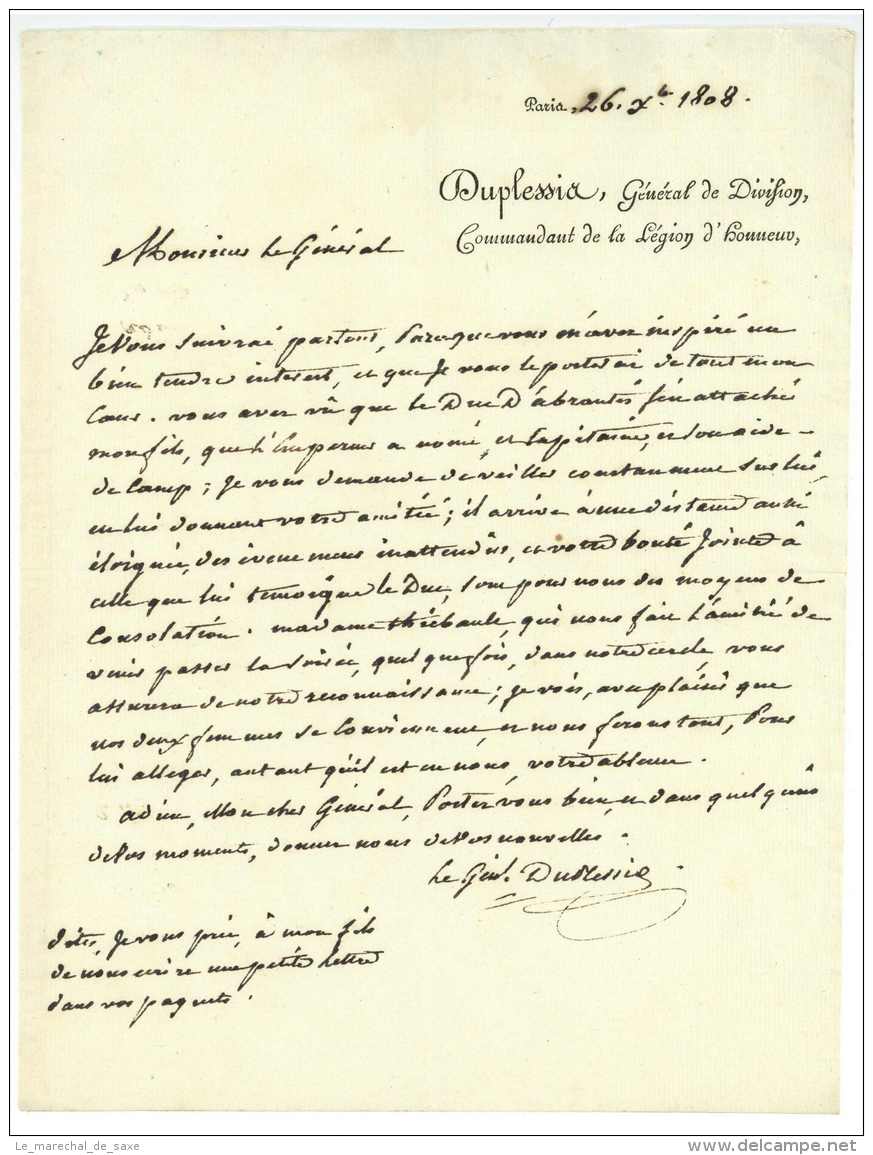 Paris, 26. xbre. 1808.
Duplessis, Général de Division,
Commandant de la Légion d'honneur,
Monsieur Le Général
Je vous suivrai partout, Parceque vous m'avez inspiré un
bien tendre interest, et que Je vous le porterai de tout mon
Cœur. vous avez vû que le Duc D'abrantés s'en attaché
mon fils, que L'Empereur a nomé, et Capitaine, et son aide-
de Camp; Je vous demande de veiller constamment sur lui,
en lui donnant votre amitié; il arrive à une distance aussi
éloignée, des évenemens inattendus, et votre bonté Jointe à
celle que lui temoigne le Duc, sont pour nous des moyens de
Consolation. madame thiébault, qui nous fait L'amitié de
venir passer la soirée, quelquefois, dans notre cercle, vous
assurera de notre reconnaissance; Je vois, avec plaisir que
nos deux femmes se Conviennent, et nous ferons tout, Pour
lui alléger, autant qu'il est en nous, votre absence.
adieu, Mon cher Général, Portez vous bien, et dans quelqu'uns
de Vos moments, donnez nous de Vos nouvelles.
Le Génl. Duplessis
dites, Je vous prie, à mon fils
de nous écrire une petite Lettre
dans vos paquets.
Le_marechal_de_saxe
delcampe.net